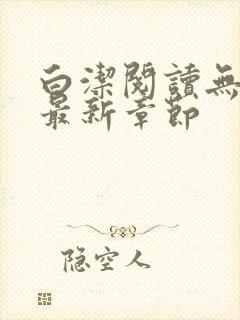 白潔閱讀無
最新章節
隐空人